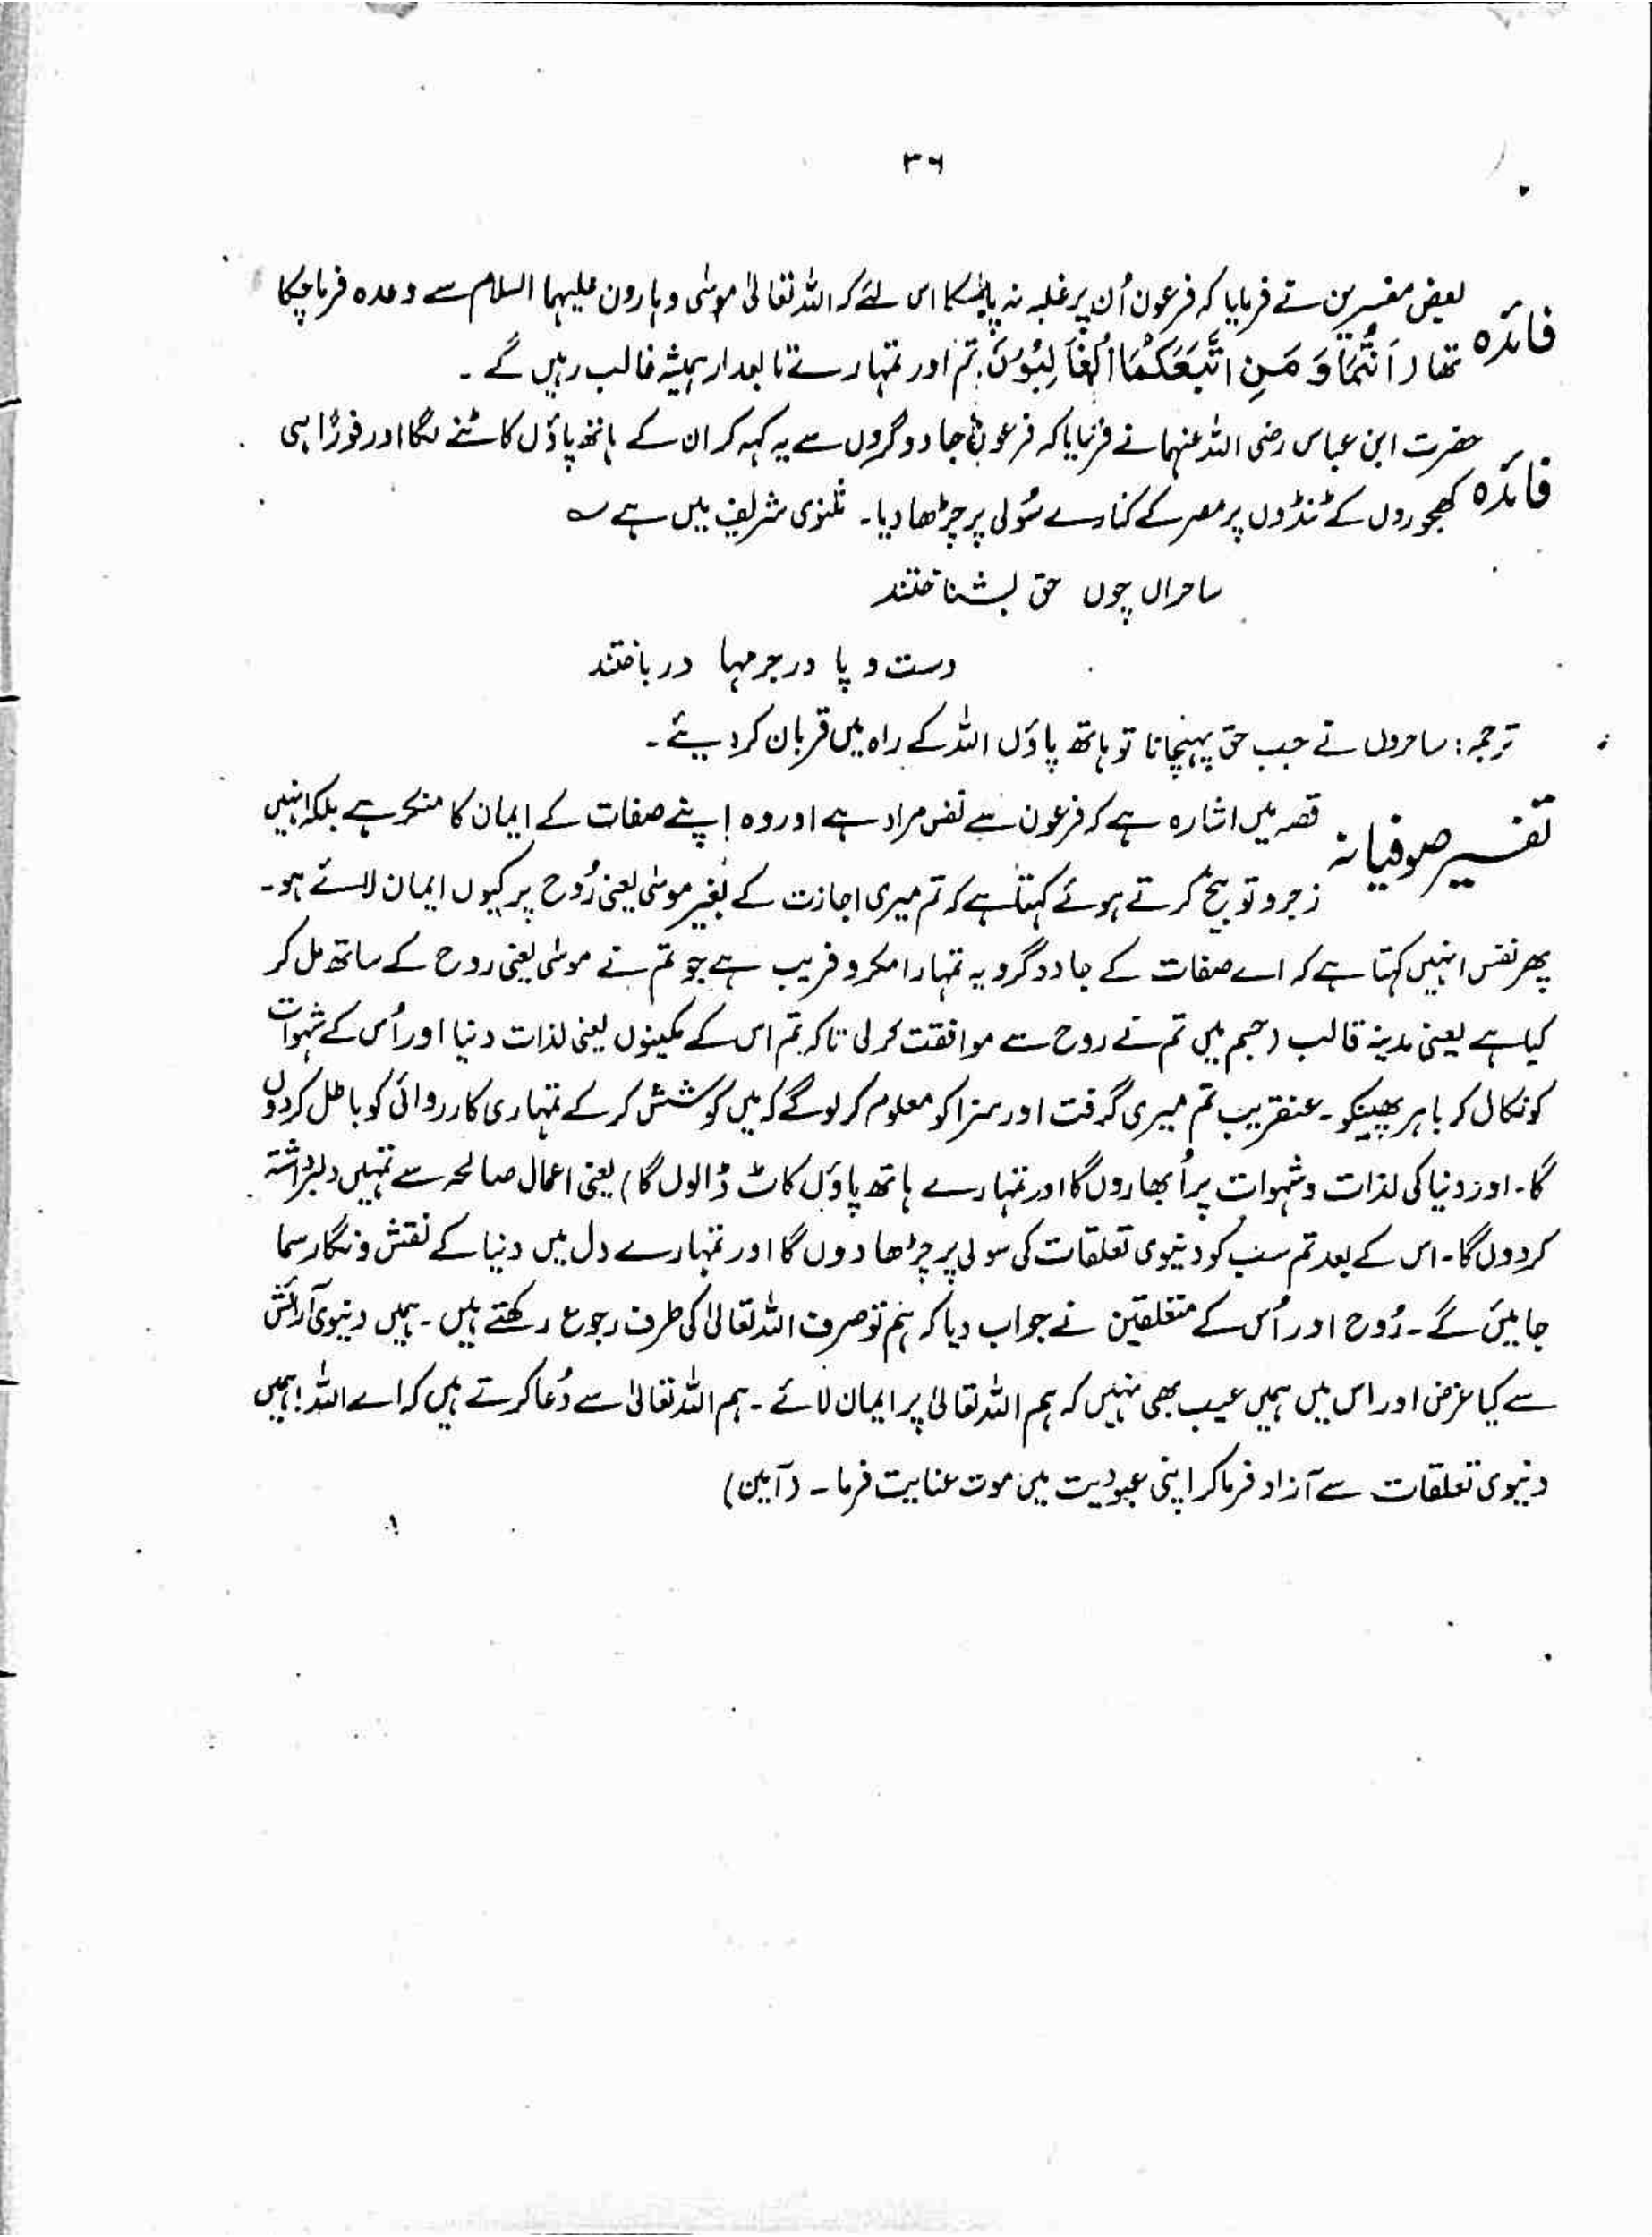 ۳۶
بعض مفسرین نے فرمایا کہ فرعون اُن پر غلبہ نہ پا سکا اس لئے کہ اللہ تعالیٰ موسٰی وہارون علیہما السلام سے وعدہ فرما چکا
فائدہ تھا (اَنْتُمَا وَ مَنِ اتَّبَعَكُمَا الْغَالِبُوْنَ تم اور تمہارے تابعدار ہمیشہ غالب رہیں گے ۔
حضرت ابن عباس رضی اللہ عنہما نے فرمایا کہ فرعون جادوگروں سے یہ کہہ کر ان کے ہاتھ پاؤں کاٹنے لگا اور فوراً ہی
فائدہ کھجوروں کے ٹنڈوں پر مصر کے کنارے سُولی پر چڑھا دیا۔ مثنوی شریف میں ہے ؎
ساحراں چوں حق بشناختند
دست و پا در جرمہا در باختند
ترجمہ: ساحروں نے جب حق پہنچانا تو ہاتھ پاؤں اللہ کے راہ میں قربان کر دیئے۔
تفسیر صوفیانہ قصہ میں اشارہ ہے کہ فرعون سے نفس مراد ہے اور وہ اپنے صفات کے ایمان کا منکر ہے بلکہ انہیں
زجر و توبیخ کرتے ہوئے کہتا ہے کہ تم میری اجازت کے بغیر موسٰی یعنی رُوح پر کیوں ایمان لائے ہو۔
پھر نفس انہیں کہتا ہے کہ اے صفات کے جادوگرو یہ تمہارا مکر و فریب ہے جو تم نے موسٰی یعنی روح کے ساتھ مل کر
کیا ہے یعنی مدینہ قالب (جسم میں تم نے روح سے موافقت کر لی تاکہ تم اس کے مکینوں یعنی لذات دنیا اور اُس کے شہوات
کو نکال کر باہر پھینکو۔ عنقریب تم میری گرفت اور سزا کو معلوم کر لو گے کہ میں کوشش کر کے تمہاری کارروائی کو باطل کر دوں
گا۔ اور دنیا کی لذات و شہوات پر اُبھاروں گا اور تمہارے ہاتھ پاؤں کاٹ ڈالوں گا) یعنی اعمال صالحہ سے تمہیں دلبرداشتہ
کر دوں گا۔ اس کے بعد تم سب کو دنیوی تعلقات کی سولی پر چڑھا دوں گا اور تمہارے دل میں دنیا کے نقش و نگار سما
جائیں گے۔ رُوح اور اُس کے متعلقین نے جواب دیا کہ ہم تو صرف اللہ تعالیٰ کی طرف رجوع رکھتے ہیں۔ ہمیں دنیوی آرائش
سے کیا غرض اور اس میں ہمیں عیب بھی نہیں کہ ہم اللہ تعالیٰ پر ایمان لائے ۔ ہم اللہ تعالیٰ سے دُعا کرتے ہیں کہ اے اللہ! ہمیں
دنیوی تعلقات سے آزاد فرما کر اپنی عبودیت میں موت عنایت فرما۔ (آمین)